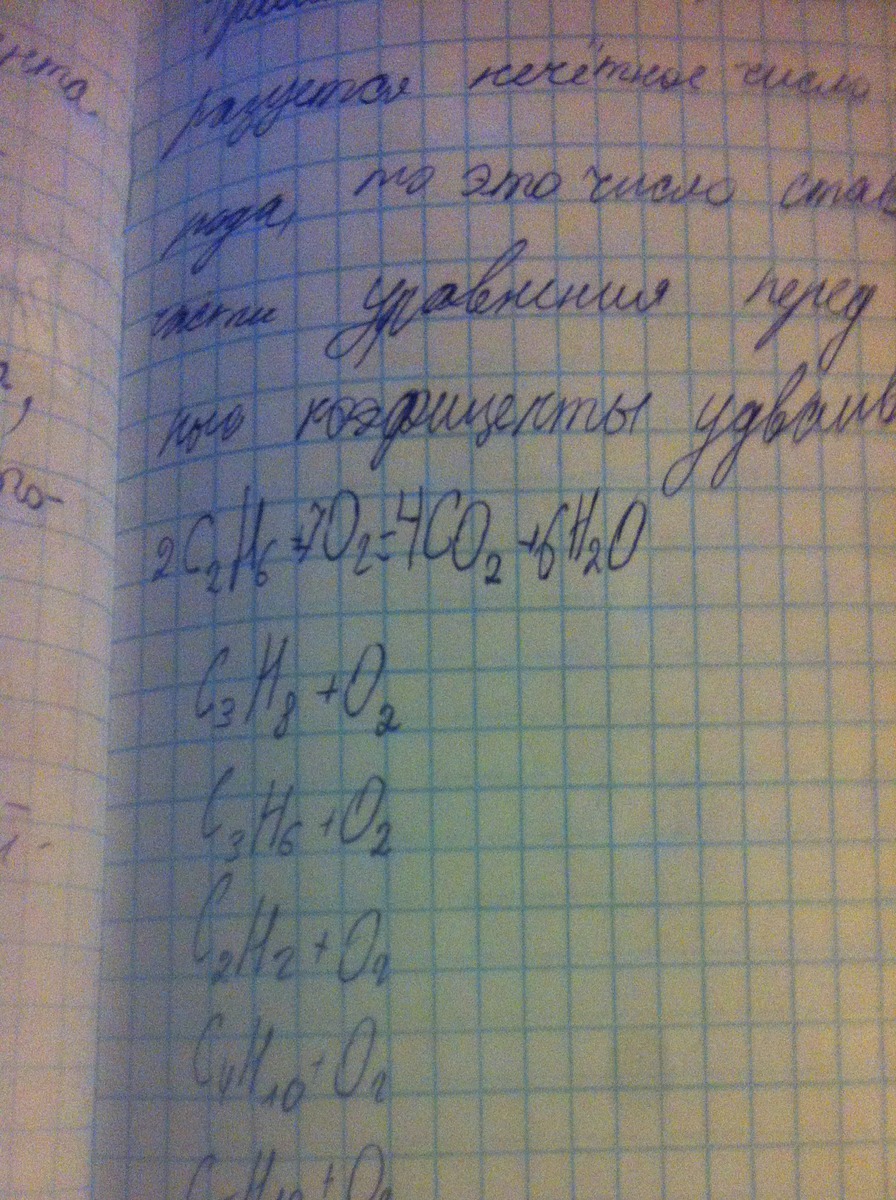 разуется нечётное число
рода, то это число став
части уравнения перед
ного коэфициенты удваив
2C₂H₆+7O₂=4CO₂+6H₂O
C₃H₈+O₂
C₃H₆+O₂
C₂H₂+O₂
C₄H₁₀+O₂